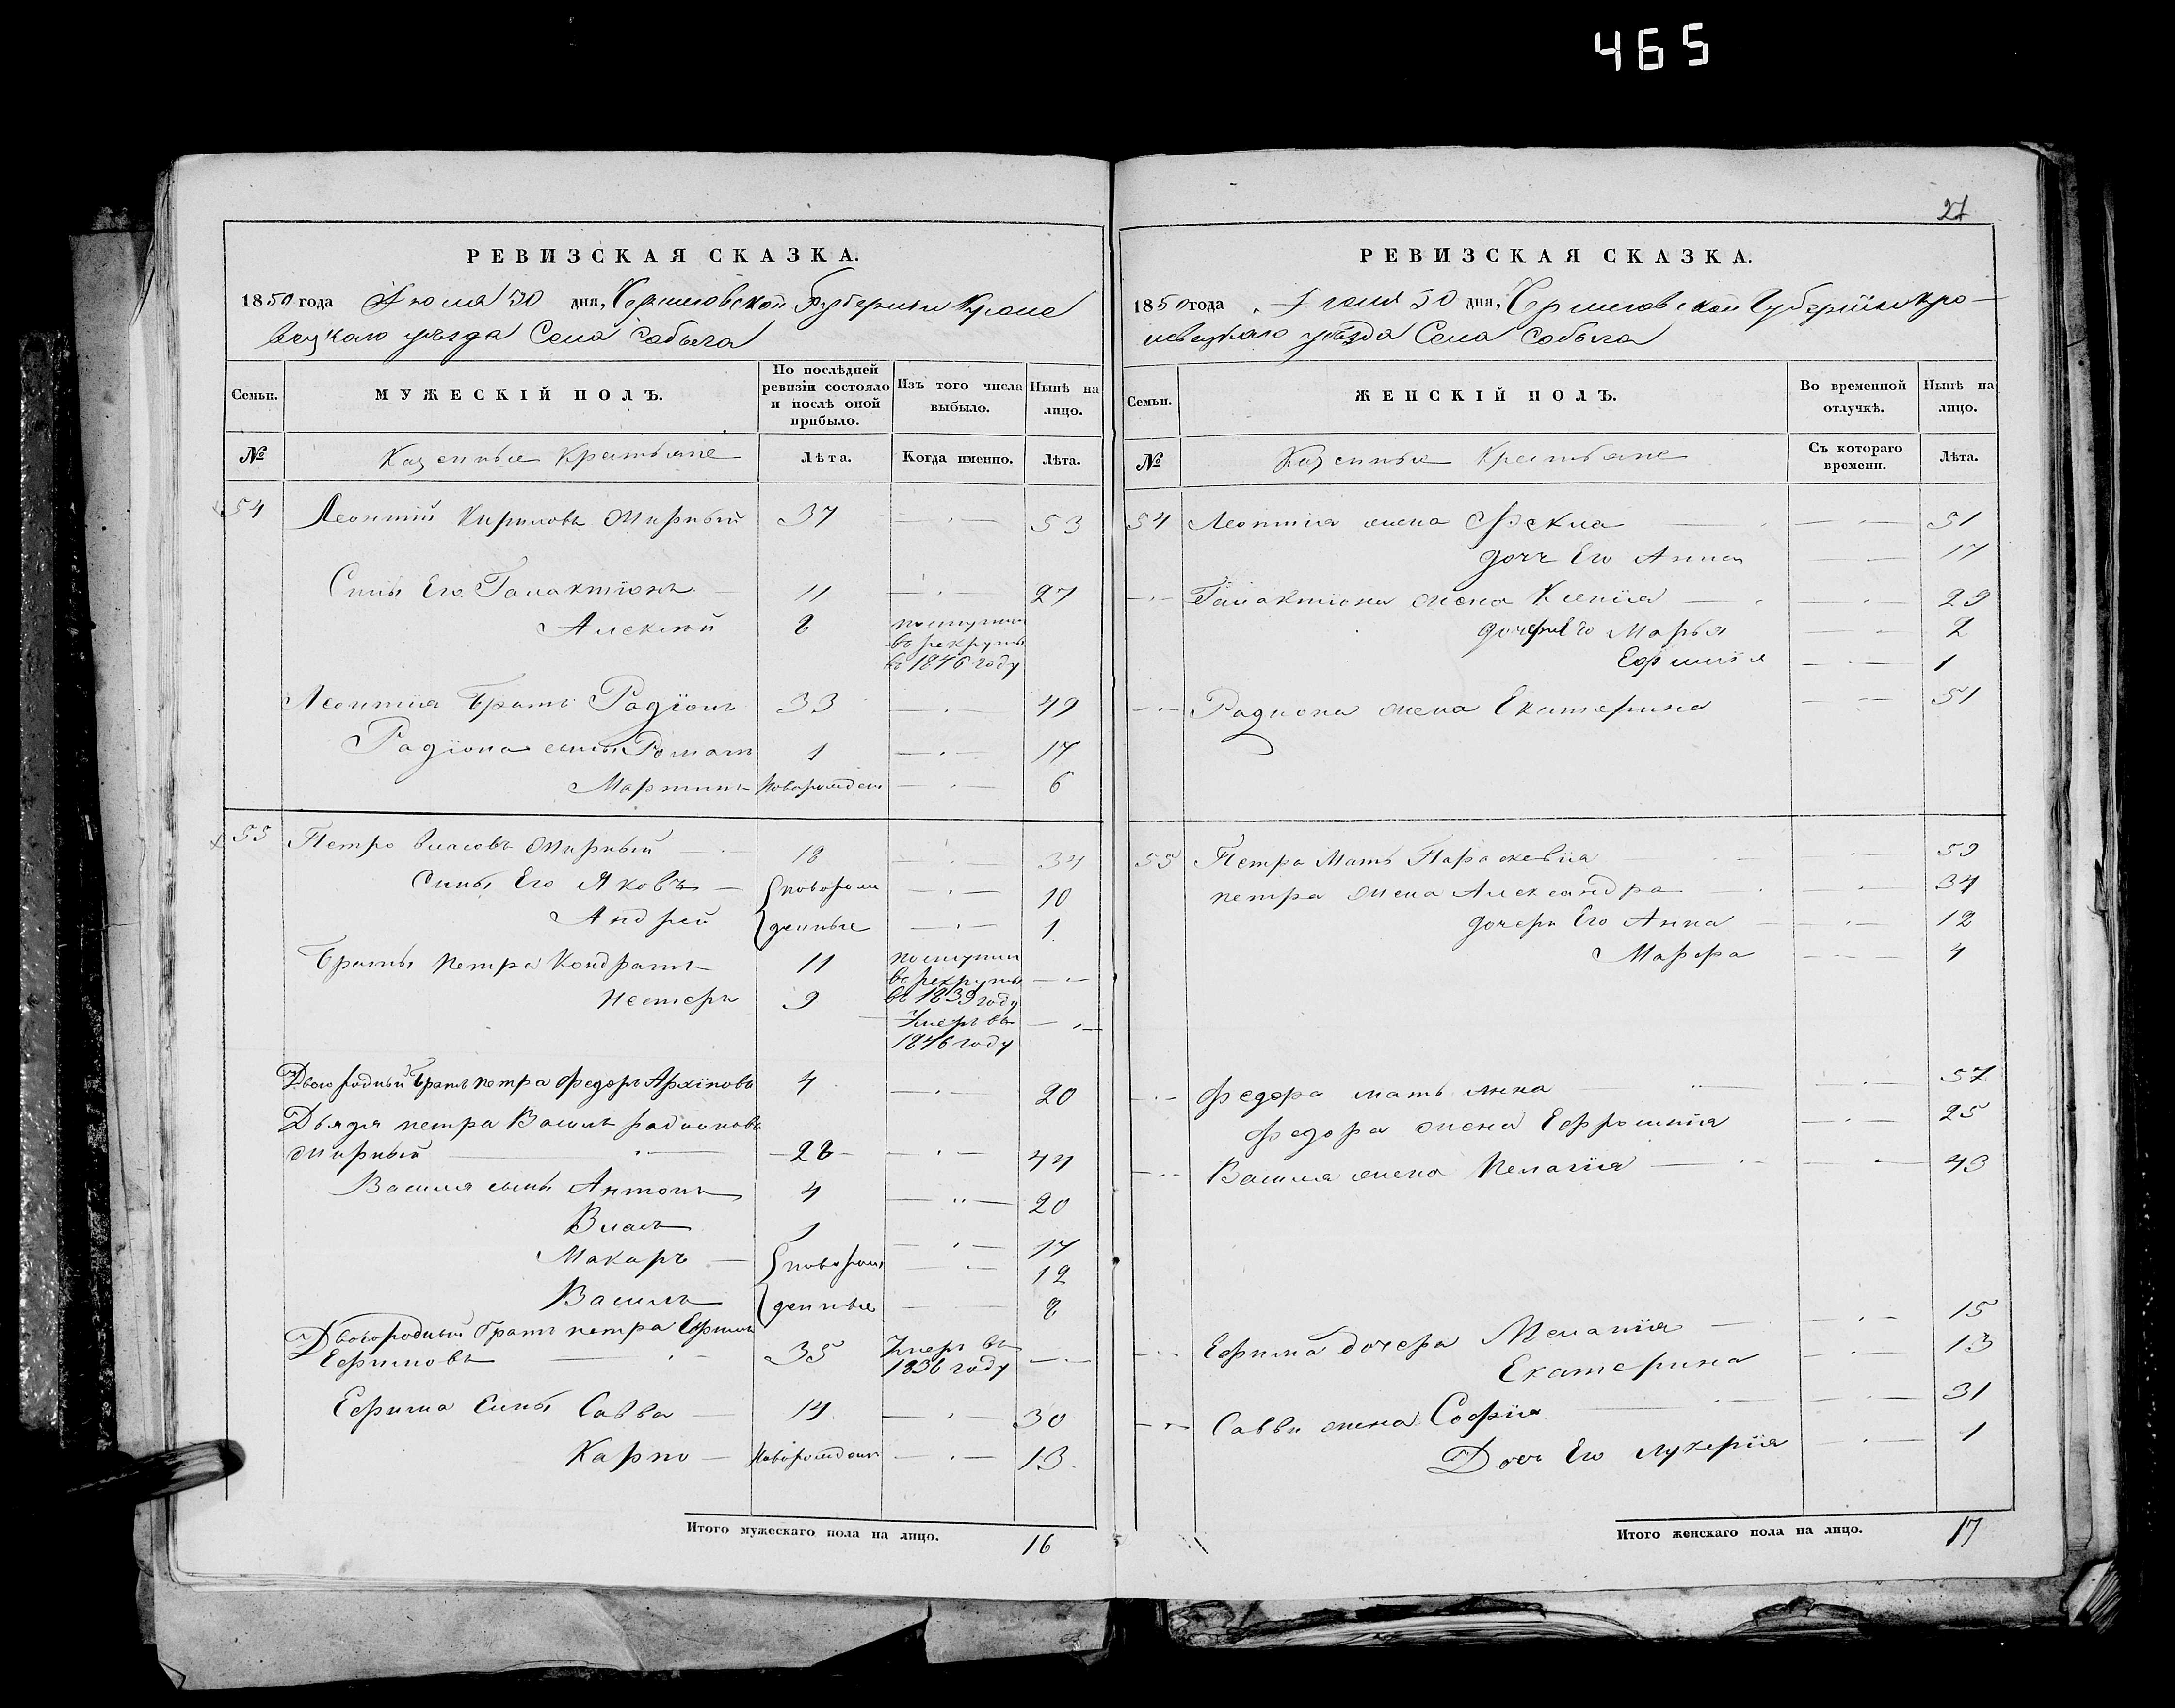 465
РЕВИЗСКАЯ СКАЗКА.
1850 года Июля 30 дня, Черниговской Губерніи Кроле
вецкаго уезда Села Собыча
Семьи.
МУЖЕСКІЙ ПОЛЪ.
По послѣдней ревизіи состояло и послѣ оной прибыло.
Изъ того числа выбыло.
Нынѣ на лицо.
№
Казенные Крестьяне
Лѣта.
Когда именно.
Лѣта.
54 Леонтій Кириловъ Жирный 37 53
Сины Его Галактіонъ 11 27
Алексѣй 8 поступил
въ рекруты
въ 1846 году
Леонтія Братъ Радіонъ 33 49
Радіона сыны Романъ 1 17
Мартинъ Новорожден 6
55 Петро Власовъ Жирный 18 34
Сины Его Яковъ новорож 10
Андрей денные 1
Браты Петра Кондратъ 11 поступил
въ рекруты
въ 1839 году
Нестеръ 9
Умеръ въ
1846 году
Двоюродный Братъ петра Федоръ Архіповъ 4 20
Дьядя петра Василь радионовъ
Жирный 28 44
Василя сыны Антонъ 4 20
Власъ 1 17
Макаръ новорож 12
Василь денные 8
Двоюродный братъ петра Ефимъ
Ефимовъ 35 Умеръ въ
1836 году
Ефима Сины Савва 14 30
Карпо Новорожден 13
Итого мужескаго пола на лицо. 16
27
РЕВИЗСКАЯ СКАЗКА.
1850 года Июля 30 дня, Черниговской Губерніи Кро-
левецкаго уѣзда Села Собыча
Семьи.
ЖЕНСКІЙ ПОЛЪ.
Во временной отлучкѣ.
Нынѣ на лицо.
№
Казенные Крестьяне
Съ котораго времени.
Лѣта.
54 Леонтія жена Фекла 51
дочь Его Анна 17
Галактіона жена Ксенія 29
дочери Его Марья 2
Ефимія 1
Радиона жена Екатерина 51
55 Петра Мать Параскевія 59
петра жена Александра 34
дочери Его Анна 12
Марфа 4
Федора мать Анна 57
Федора жена Ефросинія 25
Василя жена Пелагія 43
Ефима дочера Меланія 15
Екатерина 13
Саввы жена Софія 31
Дочь Его Лукерія 1
Итого женскаго пола на лицо. 17